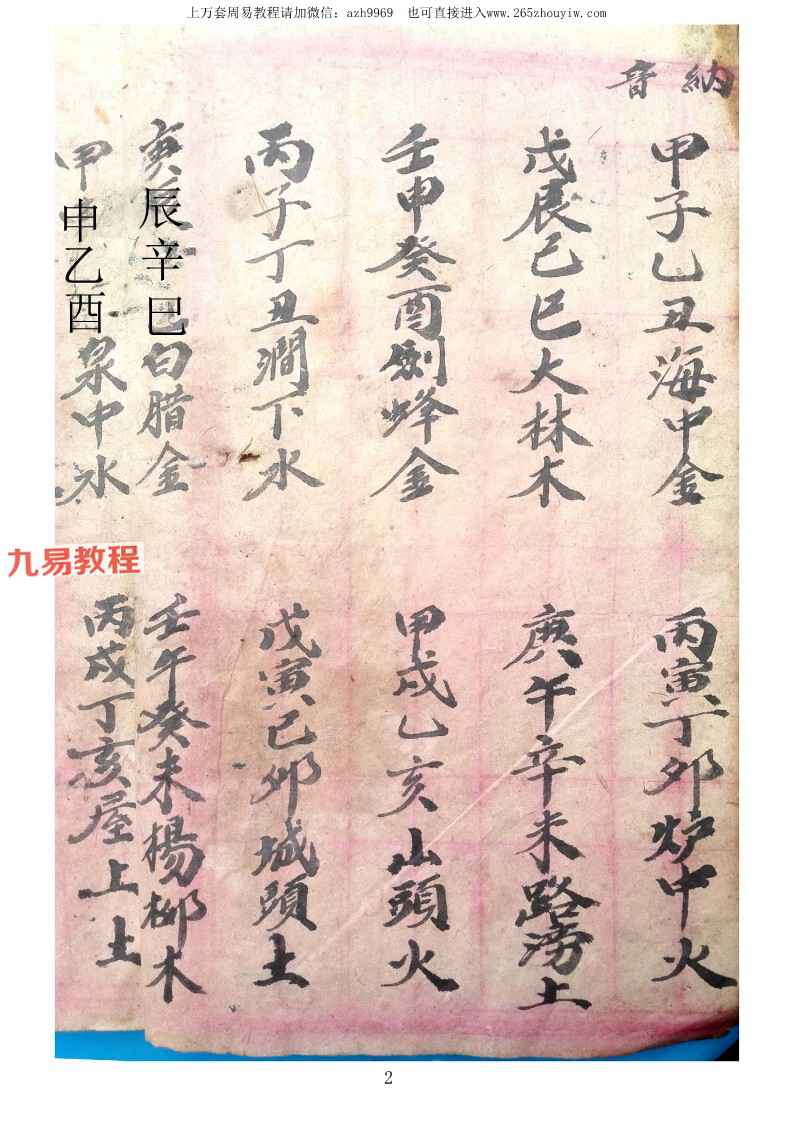 上万套周易教程请加微信：azh9969　也可直接进入www.265zhouyiw.com
納音
甲子乙丑海中金
丙寅丁卯炉中火
戊辰己巳大林木
庚午辛未路滂土
壬申癸酉劍鋒金
甲戌乙亥山頭火
丙子丁丑澗下水
戊寅己卯城頭土
庚辰辛巳白腊金
壬午癸未楊柳木
甲申乙酉泉中水
丙戌丁亥屋上土
九易教程
2